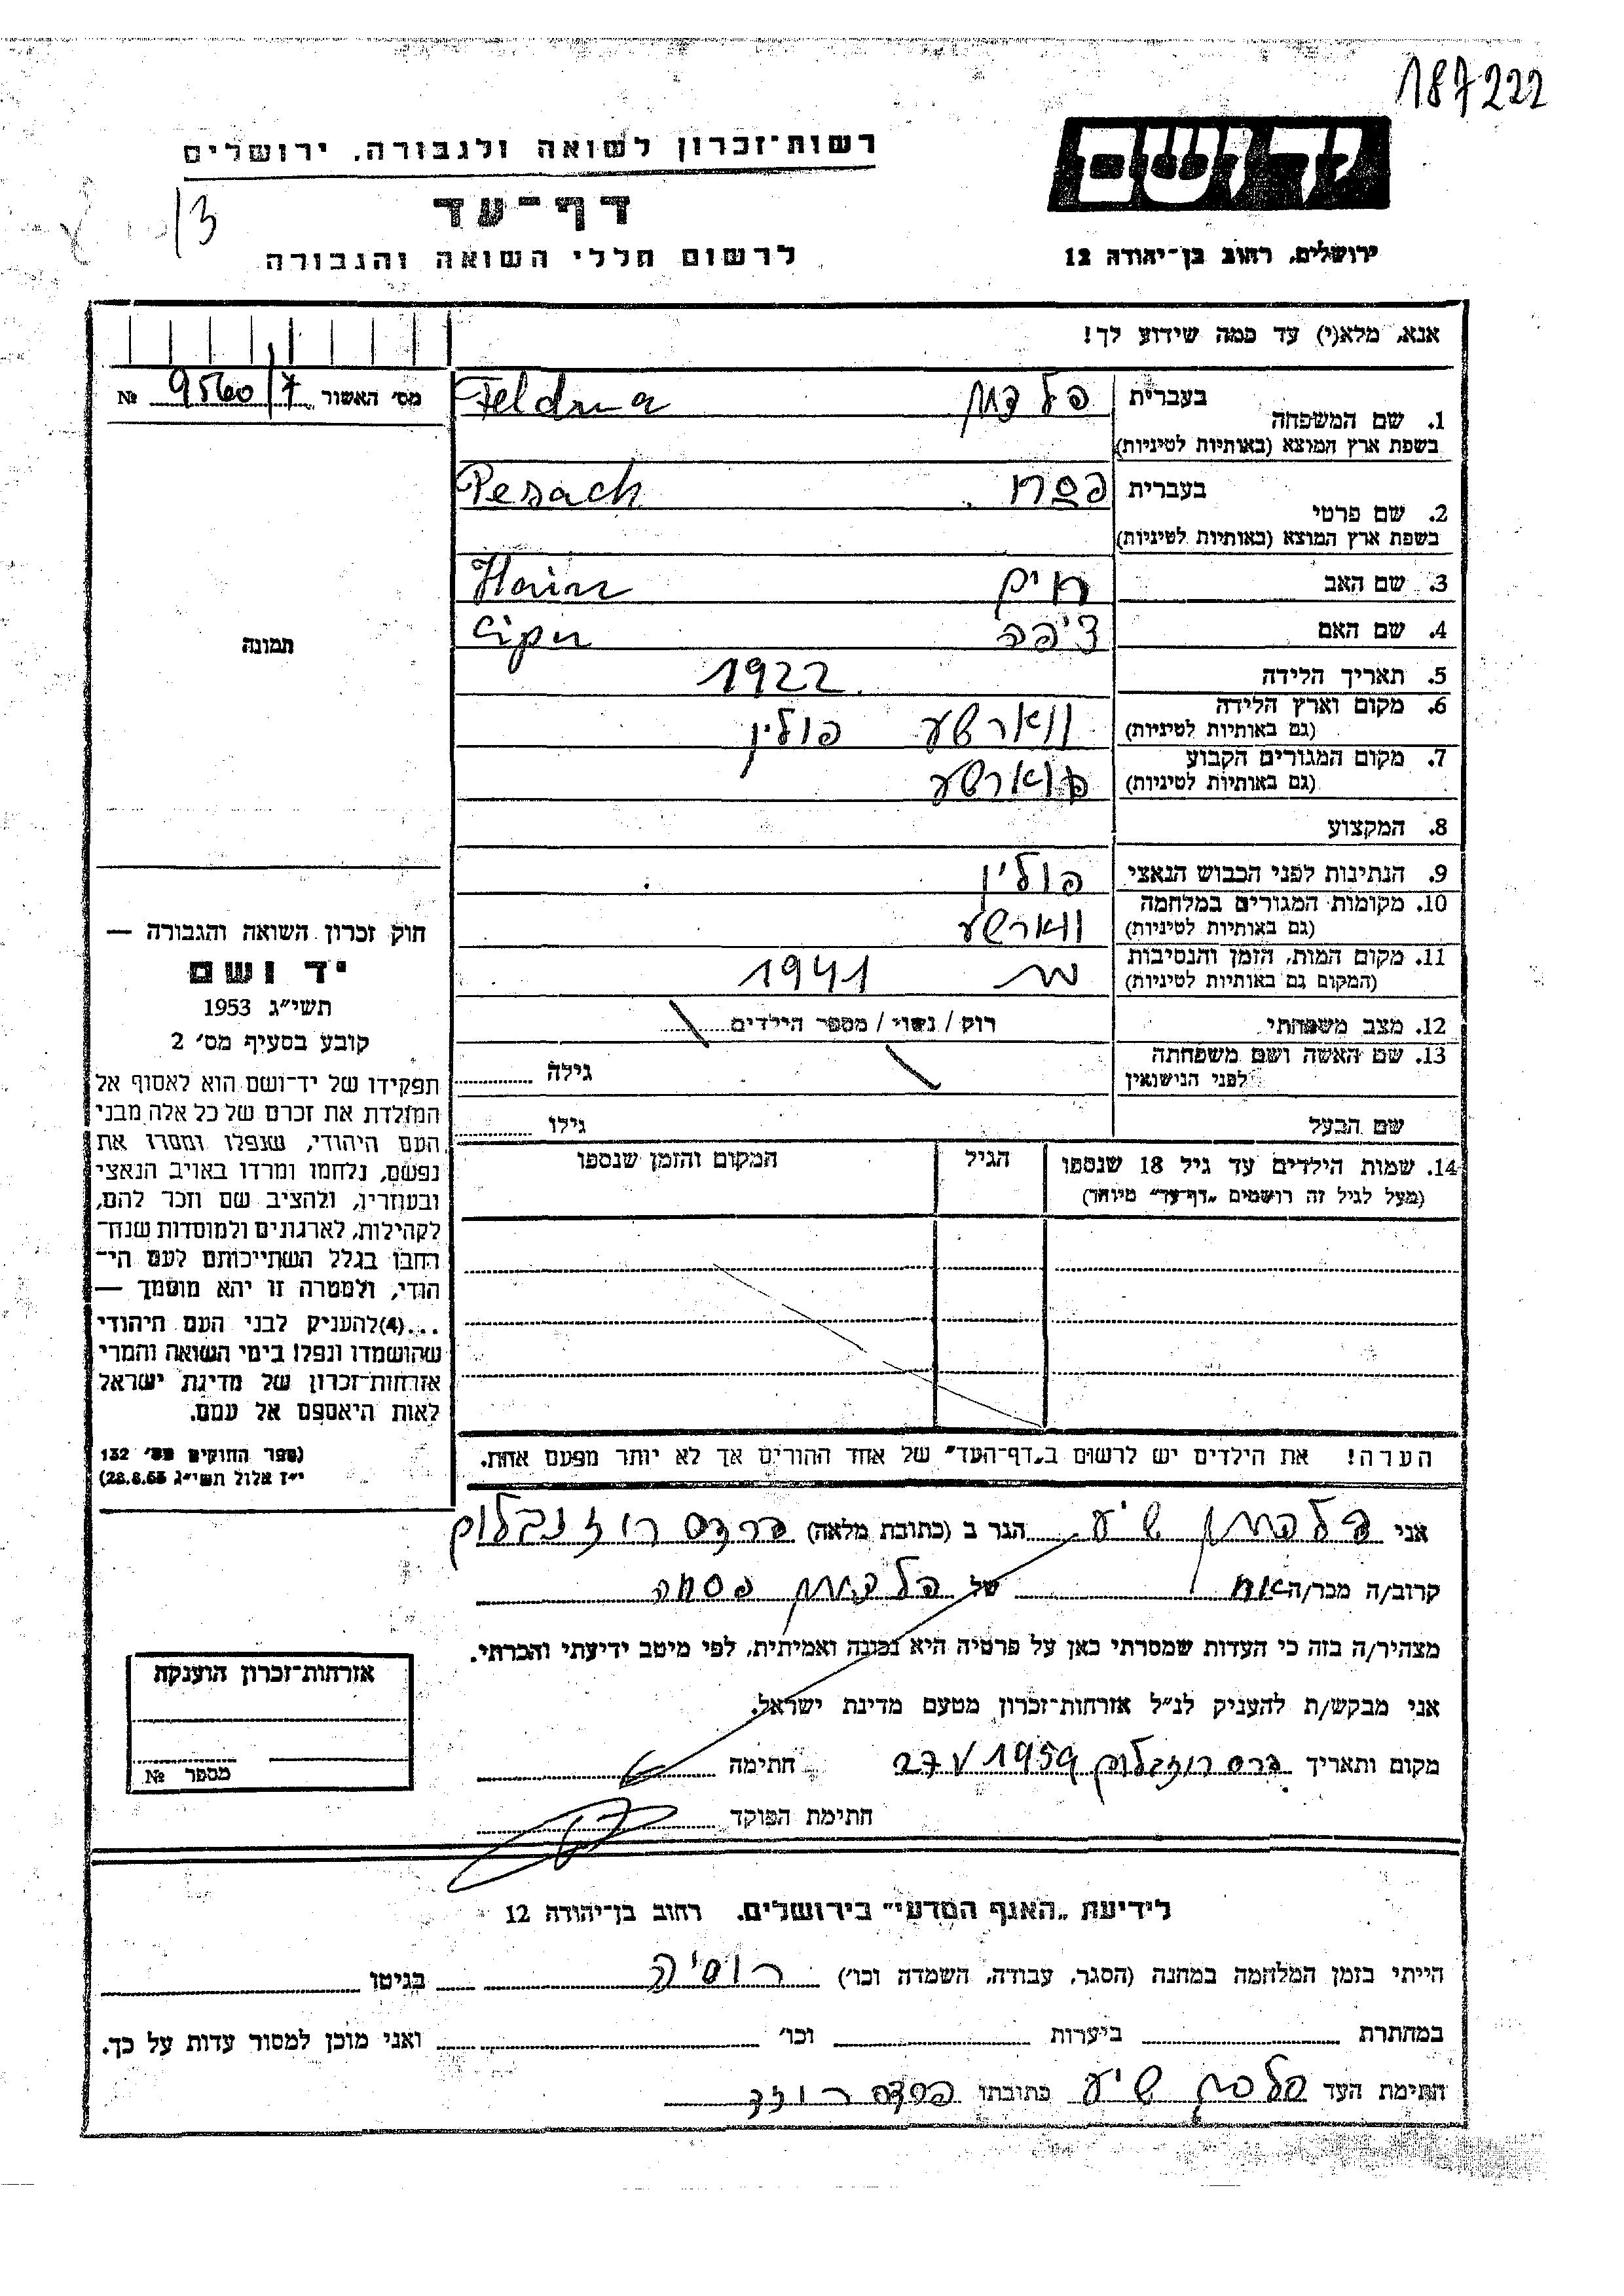 187222
יד ושם
רשות־זכרון לשואה ולגבורה, ירושלים
דף־עד
לרשום חללי השואה והגבורה
ירושלים, רחוב בן־יהודה 12
13
אנא, מלא(י) עד כמה שידוע לך!
מס׳ האשור 9560/7 №
1. שם המשפחה בעברית פלדמן Feldma
בשפת ארץ המוצא (באותיות לטיניות)
2. שם פרטי בעברית פסח Pesach
בשפת ארץ המוצא (באותיות לטיניות)
3. שם האב חיים Haim
4. שם האם ציפה Cipa
תמונה
5. תאריך הלידה 1922
6. מקום וארץ הלידה ווארשע פולין
(גם באותיות לטיניות)
7. מקום המגורים הקבוע ווארשע
(גם באותיות לטיניות)
8. המקצוע
9. הנתינות לפני הכבוש הנאצי פולין
10. מקומות המגורים במלחמה ווארשע
(גם באותיות לטיניות)
11. מקום המות, הזמן והנסיבות מת 1941
(המקום גם באותיות לטיניות)
12. מצב משפחתי רוק / נשוי / מספר הילדים
13. שם האשה ושם משפחתה גילה
לפני הנישואין
שם הבעל גילו
14. שמות הילדים עד גיל 18 שנספו הגיל המקום והזמן שנספו
(מעל לגיל זה רושמים „דף־עד” מיוחד)
הערה! את הילדים יש לרשום ב„דף־העד” של אחד ההורים אך לא יותר מפעם אחת.
חוק זכרון השואה והגבורה —
יד ושם
תשי״ג 1953
קובע בסעיף מס׳ 2
תפקידו של יד־ושם הוא לאסוף אל
המולדת את זכרם של כל אלה מבני
העם היהודי, שנפלו ומסרו את
נפשם, נלחמו ומרדו באויב הנאצי
ובעוזריו, ולהציב שם וזכר להם,
לקהילות, לארגונים ולמוסדות שנח־
רבו בגלל השתייכותם לעם הי־
הודי, ולמטרה זו יהא מוסמך —
...(4) להעניק לבני העם היהודי
שהושמדו ונפלו בימי השואה והמרי
אזרחות־זכרון של מדינת ישראל
לאות היאספם אל עמם.
(ספר החוקים מס׳ 132
י״ז אלול תשי״ג 28.8.53)
אני פלדמן שיע הגר ב (כתובת מלאה) פרדס רוזנבלום
קרוב/ה מכר/ה אח של פלדמן פסח
מצהיר/ה בזה כי העדות שמסרתי כאן על פרטיה היא נכונה ואמיתית, לפי מיטב ידיעתי והכרתי.
אני מבקש/ת להעניק לנ״ל אזרחות־זכרון מטעם מדינת ישראל.
מקום ותאריך 27 V 1959 חתימה
חתימת הפוקד
אזרחות־זכרון הוענקה
מספר №
לידיעת „האגף המדעי” בירושלים, רחוב בן־יהודה 12
הייתי בזמן המלחמה במחנה (הסגר, עבודה, השמדה וכו׳) רוסיה בגיטו
במחתרת ביערות וכו׳ ואני מוכן למסור עדות על כך.
חתימת העד פלדמן שיע כתובתו פרדס רוזנ